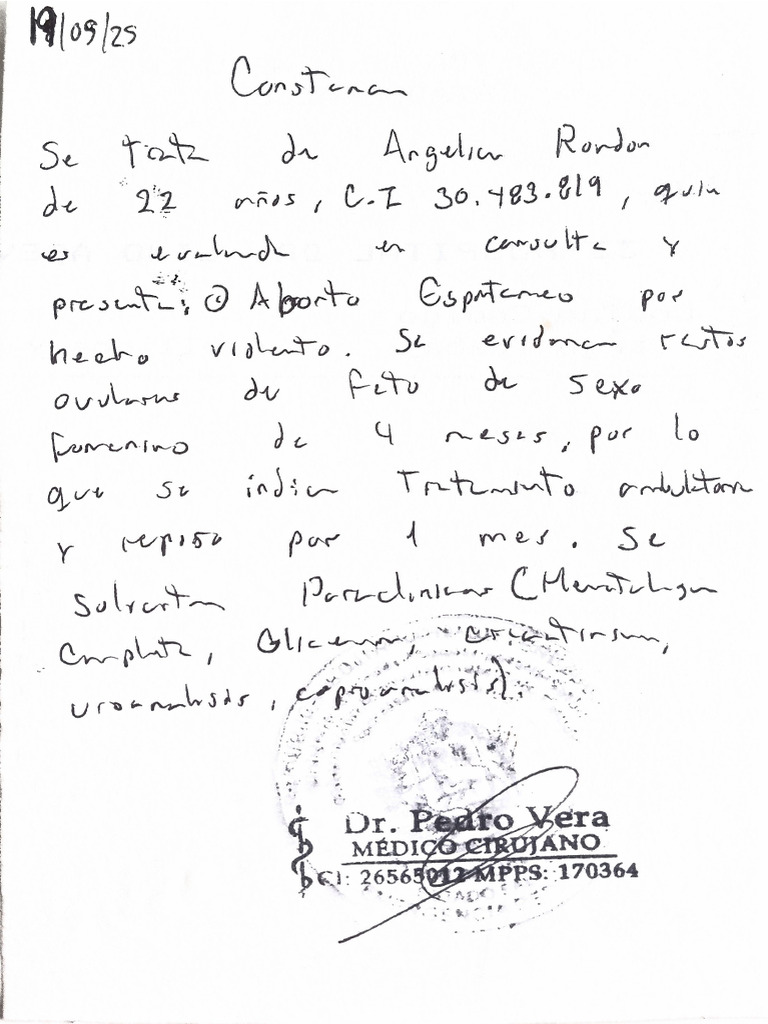 19/09/25
Constancia
Se trata de Angelica Rondon
de 22 años, C.I 30.483.819, quien
es evaluada en consulta y
presenta: ① Aborto Espontaneo por
hecho violento. Se evidencian restos
ovulares de feto de sexo
femenino de 4 meses, por lo
que se indica Tratamiento ambulatorio
y reposo por 1 mes. Se
solicitan Paraclinicos (Hematologia
Completa, Glicemia, creatinina,
uroanalisis, coproanalisis).
Dr. Pedro Vera
MÉDICO CIRUJANO
CI: 26565012 MPPS: 170364